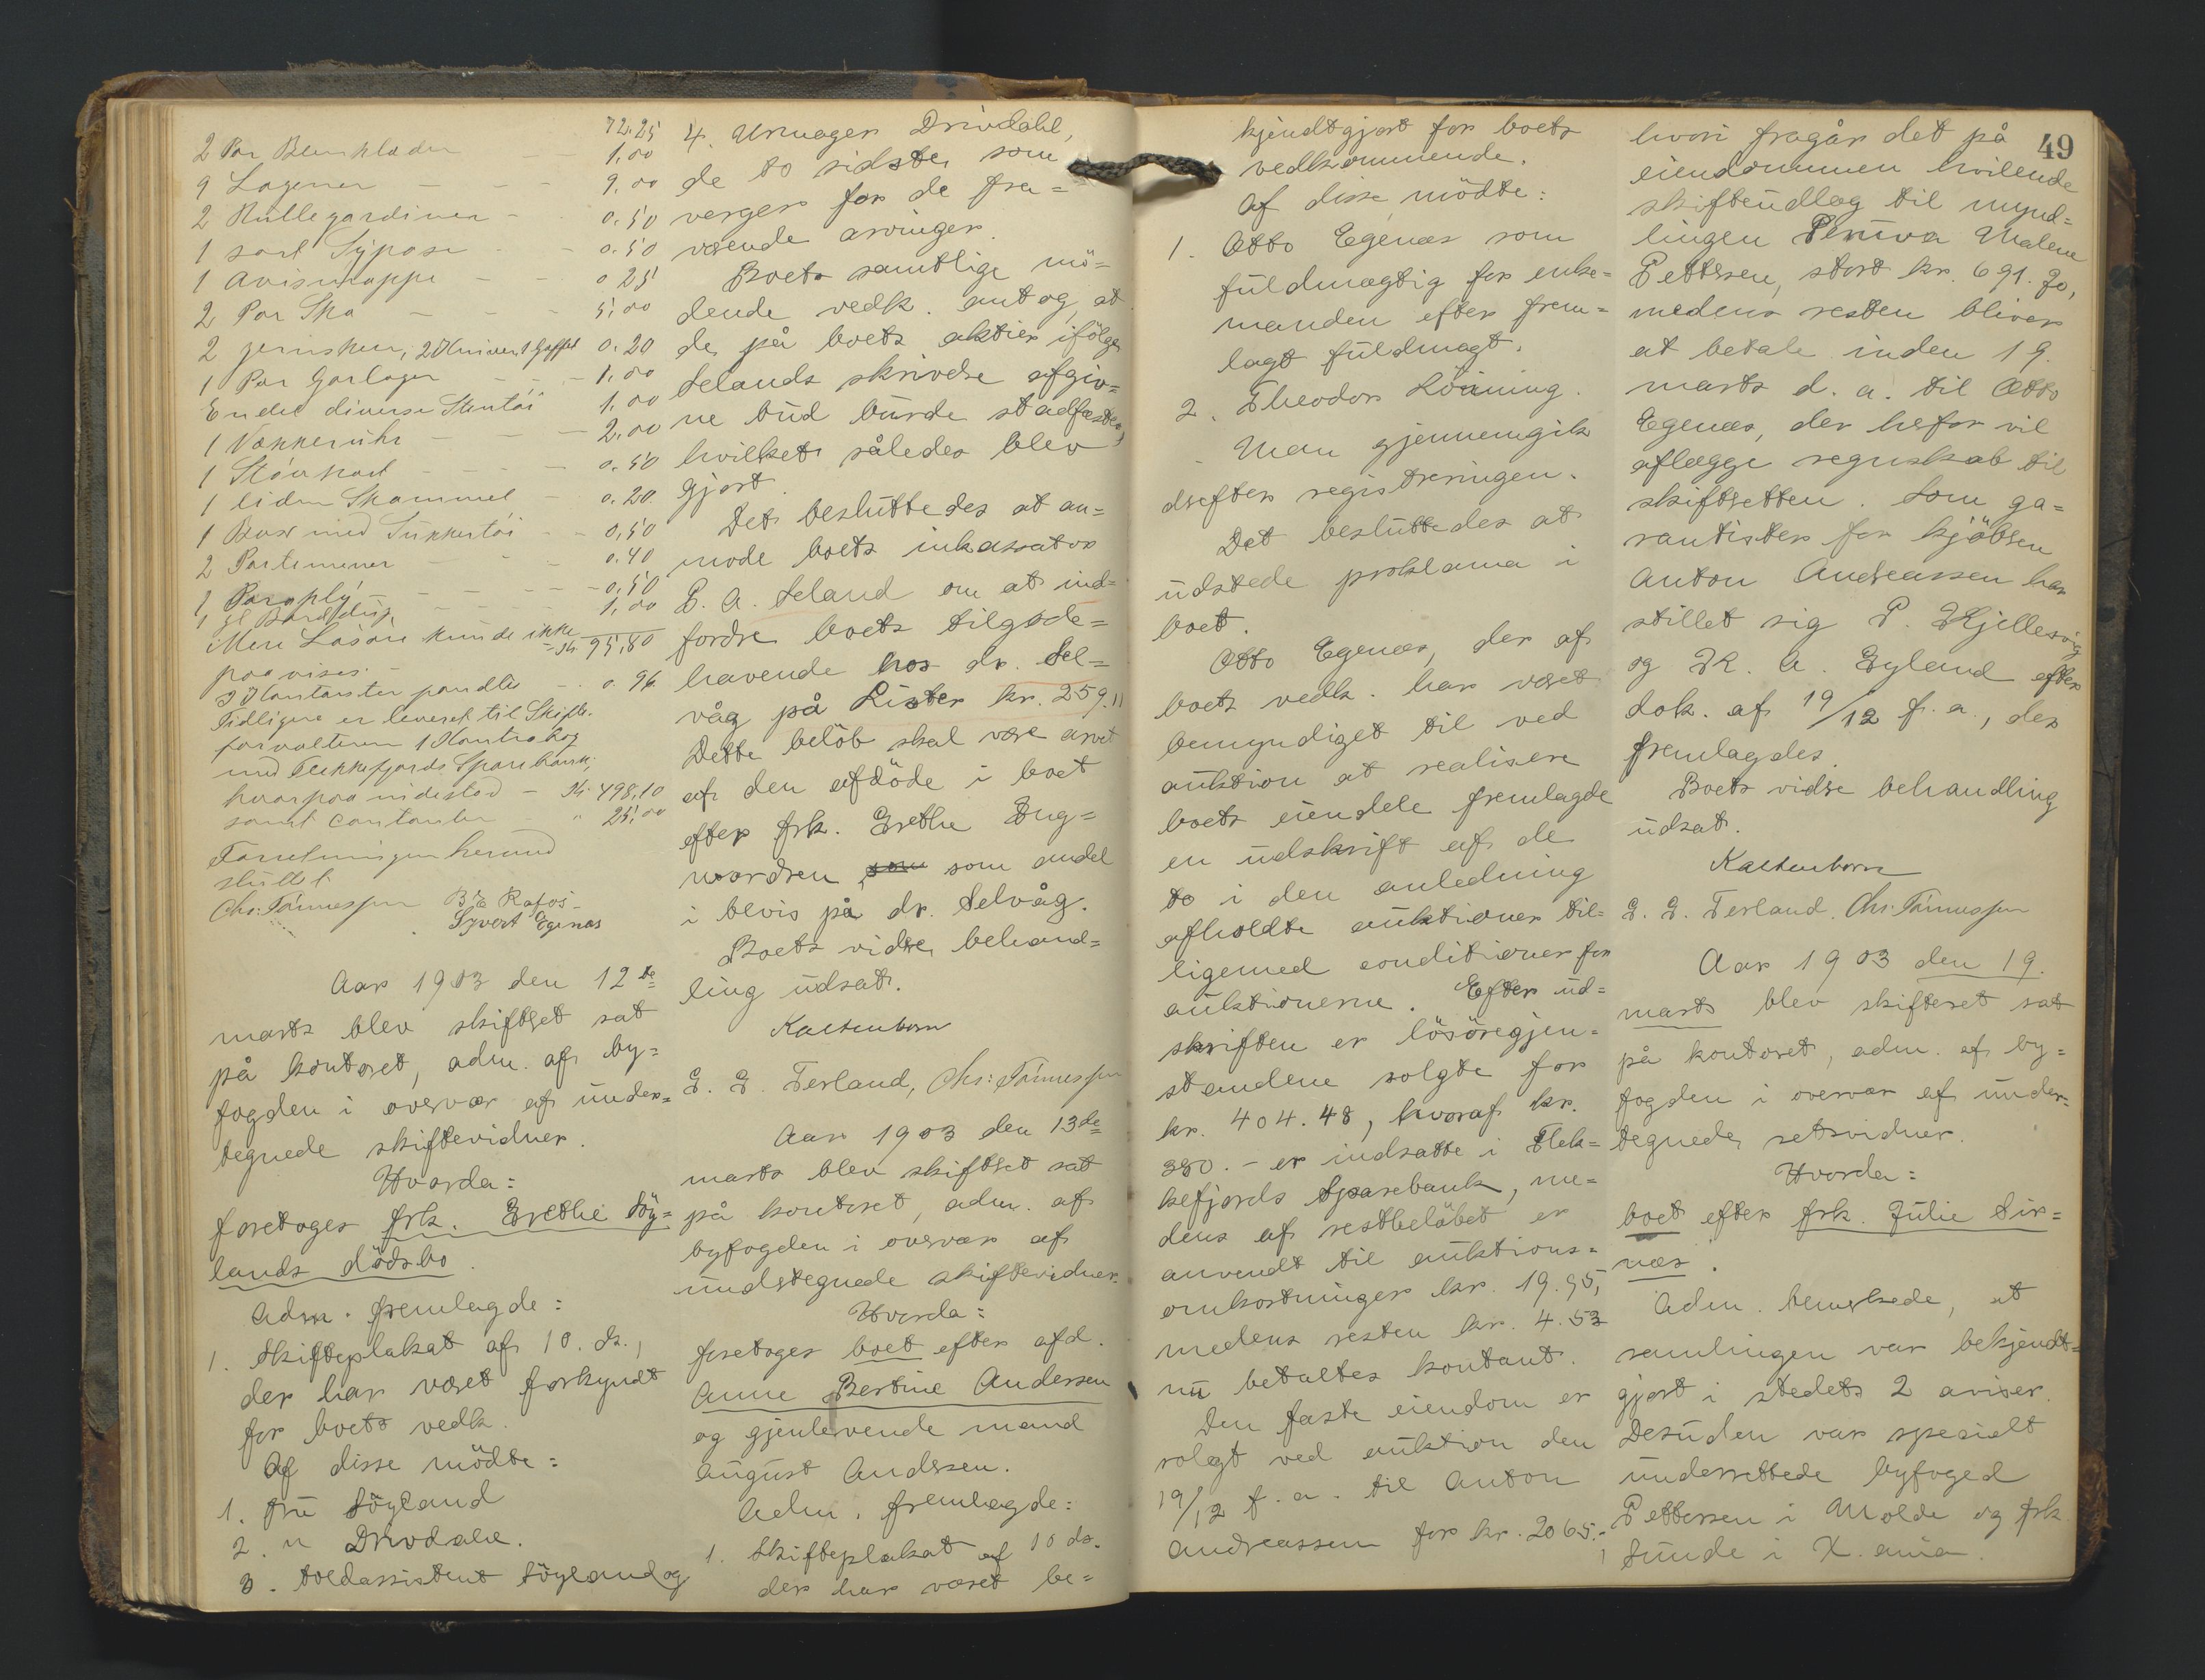 72.25
2 Par Benklæder — — 1,00
9 Lagener — — — 9.00
2 Rullegardiner — 0.50
1 sort Sypose — — 0.50
1 Avismappe — — 0 25
2 Par Sko — — — 5,00
2 jernskeer, 2 Kniver 1 Gaffel 0.20
1 Par Gårlager — — — 1.00
Endel diverse Stentöi 1.00
1 Vækkeruhr — — — 2.00
1 — — — 0.50
1 liden Skammel — 0.20.
1 med Sukkertöi — — 0,50
2 Portemoner — — 0.40
1 Paraply — — — 0,50
1 gl — — — 1,00
Mere Løsöre kunde ikke — Kr. 95,80
paavises. —
I Kontanter — — 0.96
Tidligere er leveret til Skifte-
forvalteren 1 Kontrabog
med Flekkefjords Sparebank,
hvorpaa indestod — Kr. 498,10
samt contanter " 25,00
Forretningen hermed
sluttet
Chr. Tönnessen B. E Rafos
Syvert Egenæs
Aar 1903 den 12te
marts blev skifteret sat
på kontoret, adm. af by=
fogden i overvær af under=
tegnede skiftevidner.
Hvorda:
foretoges frk. Grethe Söy=
lands dödsbo.
Adm. fremlagde:
1. Skifteplakat af 10. ds.,
der har været forkyndt
for boets vedk.
Af disse mödte:
1. Fru Söyland
2. " Drivdahl.
3. toldassistent Söyland og
4. Urmager Drivdahl,
de to sidste som
verger for de fra=
værende arvinger.
Boets samtlige mö=
dende vedk. antog, at
de på boets aktier ifölge
Selands skrivelse afgiv=
ne bud burde stadfæstes,
hvilket således blev
gjort.
Det besluttedes at an=
mode boets inkassator
P. A. Seland om at ind=
fordre boets tilgode=
havende hos dr. Sel=
våg på Lister kr. 259.11
Dette belöb skal være arvet
af den afdöde i boet
efter frk. Grethe Ing=
wardsen som som andel
i bevis på dr. Selvåg.
Boets videre behand=
ling udsat.
Kaltenborn
G. G. Fesland, Chr: Tönnessen
Aar 1903 den 13de
marts blev skifteret sat
på kontoret, adm. af
byfogden i overvær af
undertegnede skiftevidner.
Hvorda:
foretoges boet efter afd.
Anne Bertine Andersen
og gjenlevende mand
August Andersen.
Adm. fremlagde:
1. Skifteplakat af 10 ds.
der har været be=
kjendtgjort for boets
vedkommende.
Af disse mödte:
1. Otto Egenæs som
fuldmægtig for enke=
manden efter frem=
lagt fuldmagt.
2. Theodor Löining.
Man gjennemgik
derefter registreringen.
Det besluttedes at
udstede proklama i
boet.
Otto Egenæs, der af
boets vedk. har været
bemyndiget til ved
auktion at realisere
boets eiendele fremlagde
en udskrift af de
to i den anledning
afholdte auktioner til=
ligemed conditioner for
auktionerne. Efter ud=
skriften er lösöregjen=
standene solgte for
kr. 404.48, hvoraf kr.
380.- er indsatte i Flek=
kefjords Sparebank, me=
dens af restbelöbet er
anvendt til auktions=
omkostninger kr. 19.95,
medens resten kr. 4.53
nu betaltes kontant.
Den faste eiendom er
solgt ved auktion den
19/12 f. a. til Anton
Andreassen for kr. 2065.-,
49
hvori fragår det på
eiendommen hvilende
skifteudlæg til mynd=
lingen Petrea Malene
Pettersen, stort kr. 691.70,
medens resten bliver
at betale inden 19.
marts d. a. til Otto
Egenæs, der herfor vil
aflægge regnskab til
skifteretten. Som ga=
rantister for kjöberen
Anton Andreassen har
stillet sig P. Kjellesvig
og K. A. Eyland efter
dok. af 19/12 f. a., der
fremlagdes.
Boets videre behandling
udsat.
Kaltenborn
G. G. Fesland. Chr. Tönnessen
Aar 1903 den 19.
marts blev skifteret sat
på kontoret, adm. af by=
fogden i overvær af under=
tegnede retsvidner.
Hvorda:
boet efter frk. Julie Sir=
næs.
Adm. bemerkede, at
samlingen var bekjendt=
gjort i stedets 2 aviser.
Desuden var specielt
underrettede byfoged
Pettersen i Molde og frk.
Sunde i X.ania.